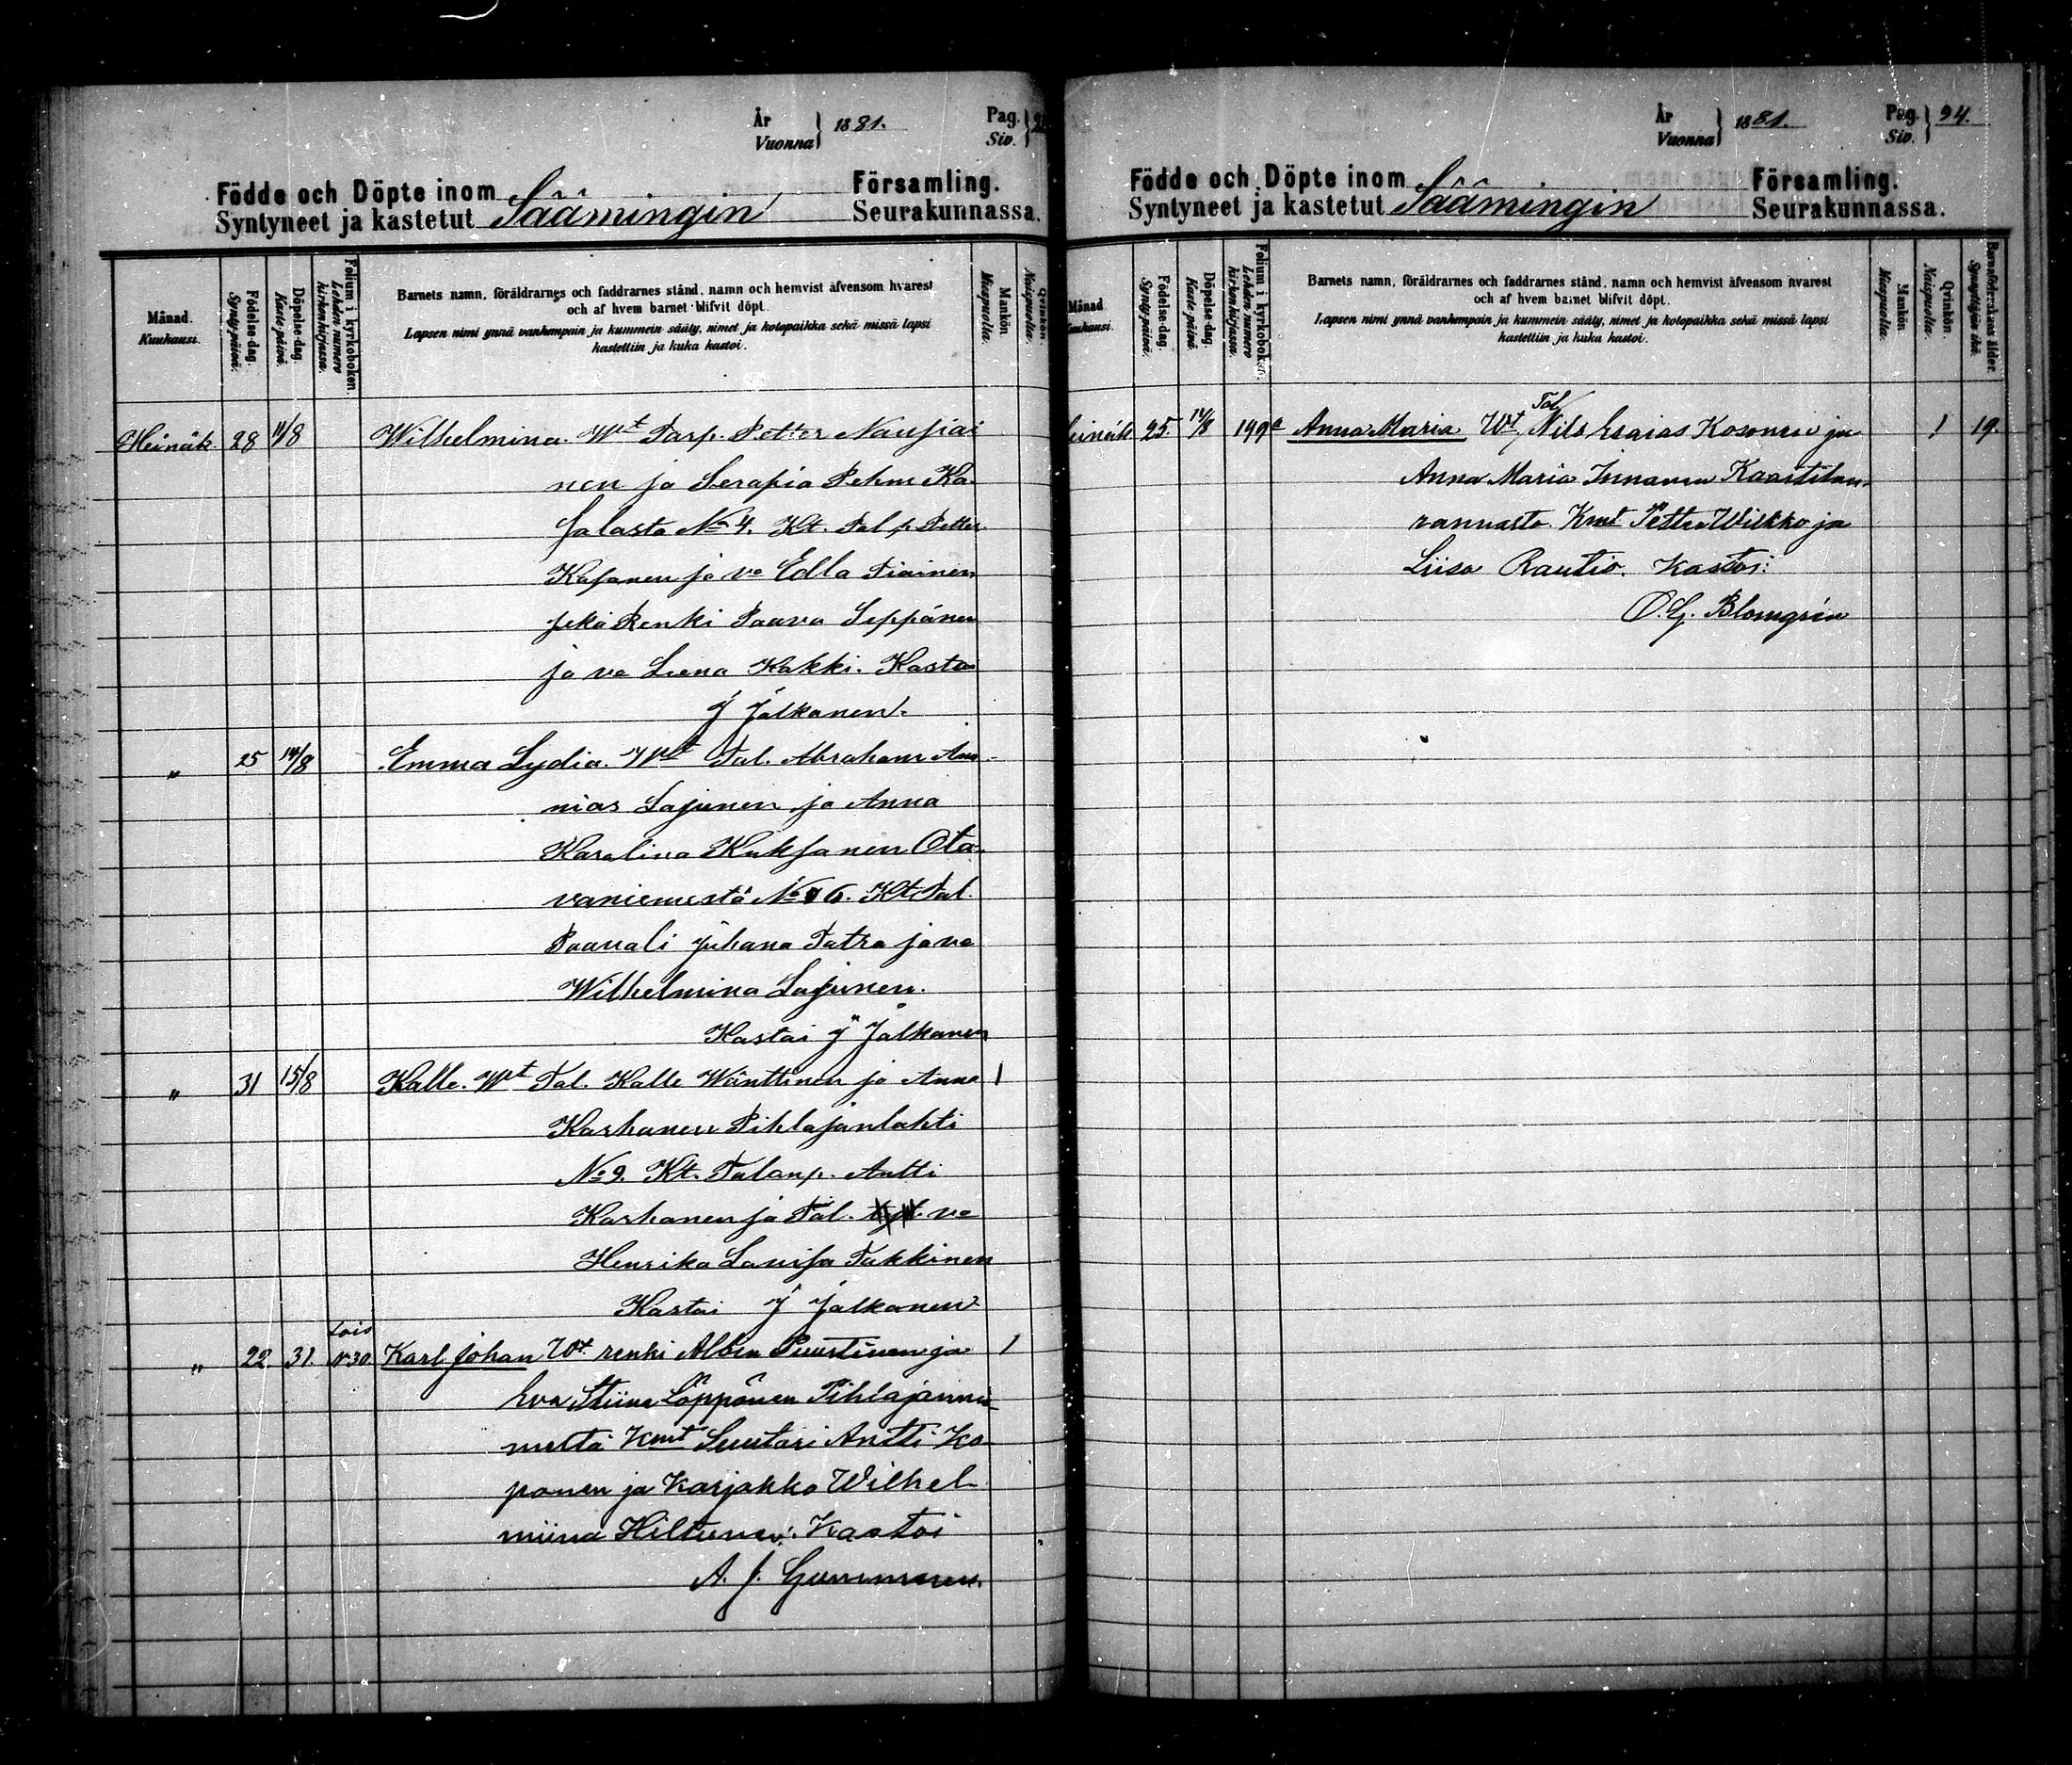 År
Vuonna } 1881.
Pag.
Siv. }
Födde och Döpte inom
Syntyneet ja kastetut Säämingin
Församling.
Seurakunnassa.
Månad.
Kuukausi.
Födelse-dag.
Synty-päivä.
Döpelse-dag.
Kaste-päivä.
Folium i kyrkoboken.
Lehden numero
kirkonkirjassa.
Barnets namn, föräldrarnes och faddrarnes stånd, namn och hemvist äfvensom hvarest
och af hvem barnet blifvit döpt.
Lapsen nimi ynnä vanhempain ja kummein sääty, nimet ja kotopaikka sekä missä lapsi
kastettiin ja kuka kastoi.
Mankön
Miespuolia.
Qvinkön.
Naispuolia.
Heinäk. 28 11/8 Wilhelmina. Wt Torp. Petter Naujiai
nen ja Serafia Pehm Ka
jalasta No 4. Kt. Tal. p. Petter
Kajanen ja va Edla Tiainen
sekä Renki Paavo Seppänen
ja va Leena Kakki. Kastoi
J Jalkanen.
" 25 14/8 Emma Lydia. Wt Tal. Abraham Ana-
nias Lajunen ja Anna
Karolina Kukjanen Ota-
vaniemestä No 6. Kt. Tal.
Paavali Juhana Tatra ja va
Wilhelmina Lajunen.
Kastoi J Jalkanen
" 31 15/8 Kalle. Wt Tal. Kalle Wänttinen ja Anna 1
Karhanen Pihlajanlahti
No 9. Kt. Talonp. Antti
Karhanen ja Tal. va
Henrika Lovisa Takkinen
Kastoi J Jalkanen
lois
" 22. 31. No 30 Karl Johan Wt. renki Albin Puustinen ja 1
Eva Stiina Löppönen Pihlajannie-
meltä Kmt Suutari Antti Ko-
ponen ja Karjakko Wilhel-
miina Hiltunen. Kastoi
A. J. Gummerus.
År
Vuonna } 1881.
Pag.
Siv. } 94.
Födde och Döpte inom
Syntyneet ja kastetut Säämingin
Församling.
Seurakunnassa.
Månad
Kuukausi.
Födelse-dag.
Synty-päivä.
Döpelse-dag.
Kaste-päivä
Folium i kyrkoboken.
Lehden numero
kirkonkirjassa.
Barnets namn, föräldrarnes och faddrarnes stånd, namn och hemvist äfvensom hvarest
och af hvem barnet blifvit döpt.
Lapsen nimi ynnä vanhempain ja kummein sääty, nimet ja kotopaikka sekä missä lapsi
kastettiin ja kuka kastoi.
Mankön
Miespuolia.
Qvinkön.
Naispuolia.
Barnaföderskans ålder.
Synnyttäjän ikä.
Tal.
Heinäk 25. 14/8 199a Anna Maria Wt, Nils Esaias Kosonen ja 1 19.
Anna Maria Innanen Kaartilan-
rannasta. Kmt Petter Wilkko ja
Liisa Rautio. Kastoi:
O. G. Blomgrén